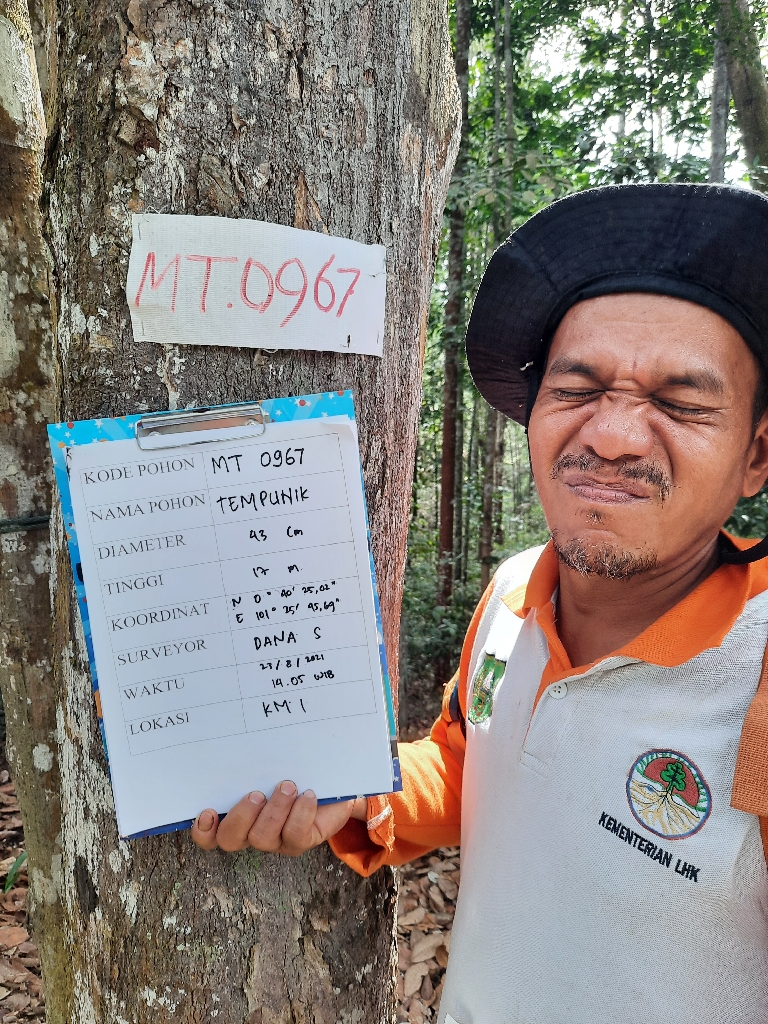 MT.0967
KODE POHON MT 0967
NAMA POHON TEMPUNIK
DIAMETER 43 Cm
TINGGI 17 m
KOORDINAT N 0° 40' 25,02"
E 101° 25' 45,69"
SURVEYOR DANA S
WAKTU 23/8/2021
14.05 WIB
LOKASI KM 1
KEMENTERIAN LHK